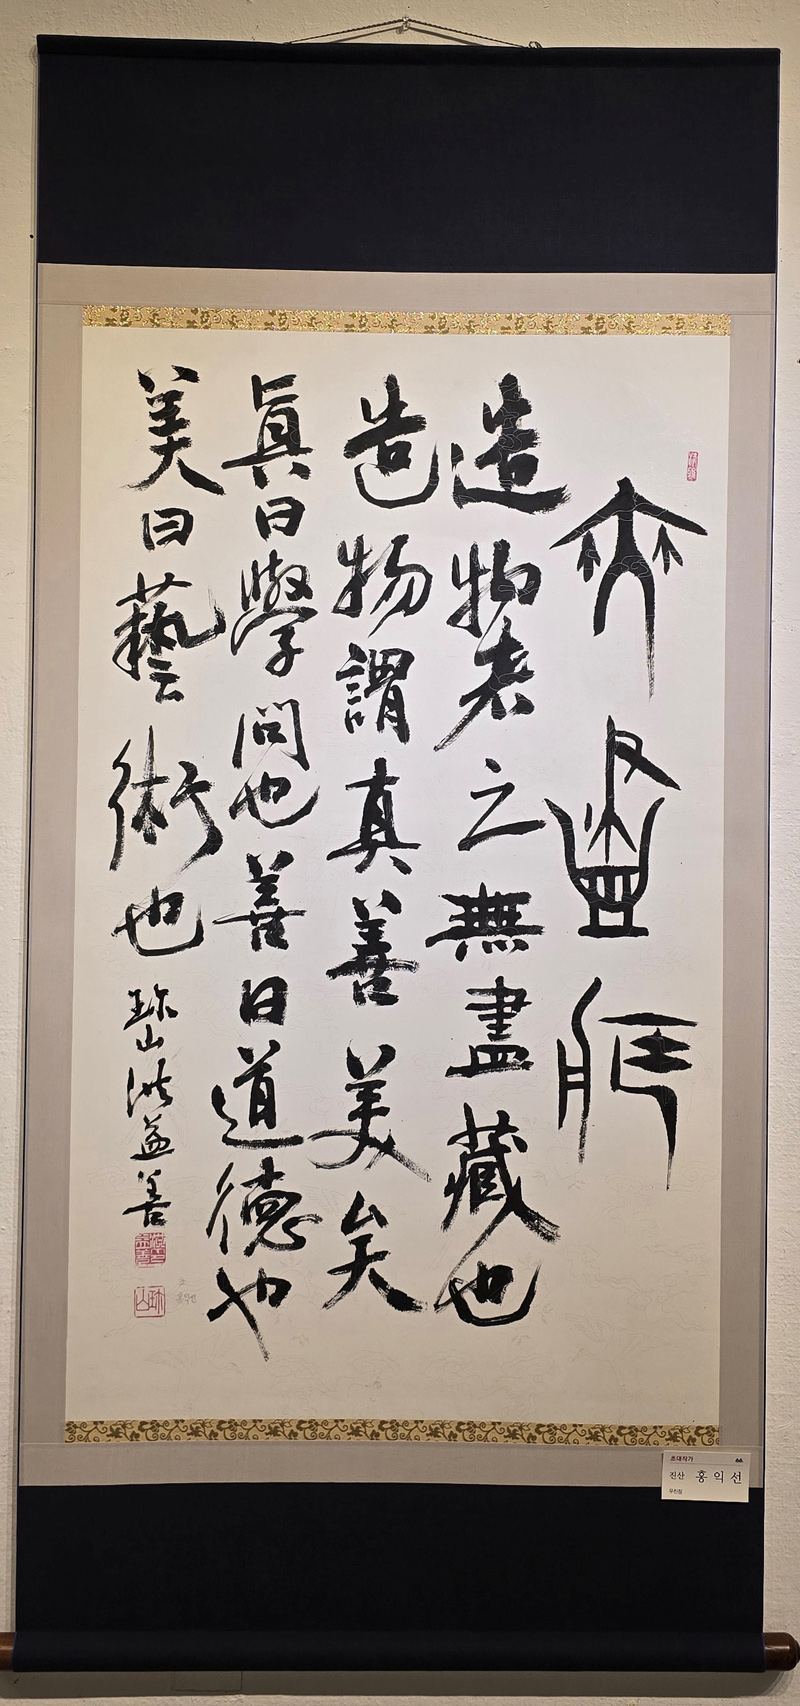 無盡藏
造物者之無盡藏也
造物謂真善美矣
眞曰學問也善曰道德也
美曰藝術也 珎山洪益善
초대작가
진산 홍익선
무진장